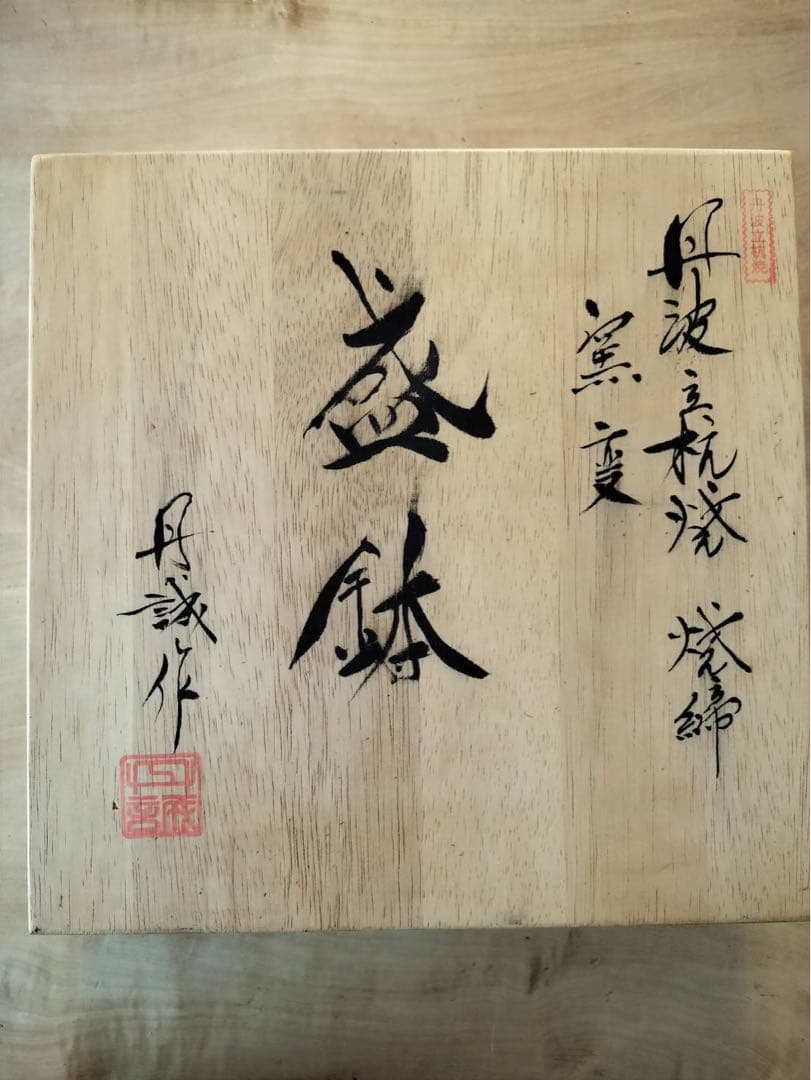 丹波立杭焼
丹波立杭焼 焼締
窯変
盛鉢
丹誠作
丹誠